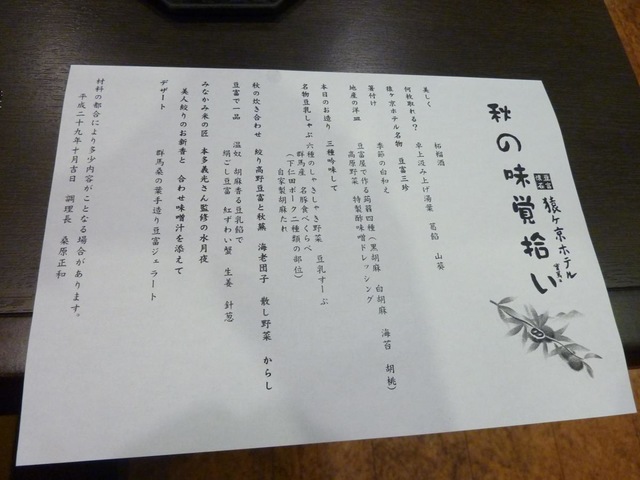 秋の味覚拾い
猿ヶ京ホテル
美しく
柘榴酒
何枚取れる？
卓上汲み上げ湯葉 葛餡 山葵
猿ヶ京ホテル名物 豆富三珍
箸付け
季節の白和え
豆富屋で作る蒟蒻四種（黒胡麻 白胡麻 海苔 胡桃）
地産の洋皿
高原野菜 特製酢味噌ドレッシング
本日のお造り 三種吟味して
名物豆乳しゃぶ 六種のしゃきしゃき野菜 豆乳すーぷ
群馬産 名豚食べくらべ
（下仁田ポーク二種類の部位）
自家製胡麻たれ
秋の炊き合わせ 絞り高野豆富と秋蕪 海老団子 散し野菜 からし
豆富で一品
温奴 胡麻香る豆乳餡で
絹ごし豆富 紅ずわい蟹 生姜 針葱
みなかみ米の匠 本多義光さん監修の水月夜
美人絞りのお新香と 合わせ味噌汁を添えて
デザート
群馬桑の葉手造り豆富ジェラート
材料の都合により多少内容がことなる場合があります。
平成二十九年十月吉日 調理長 桑原正和